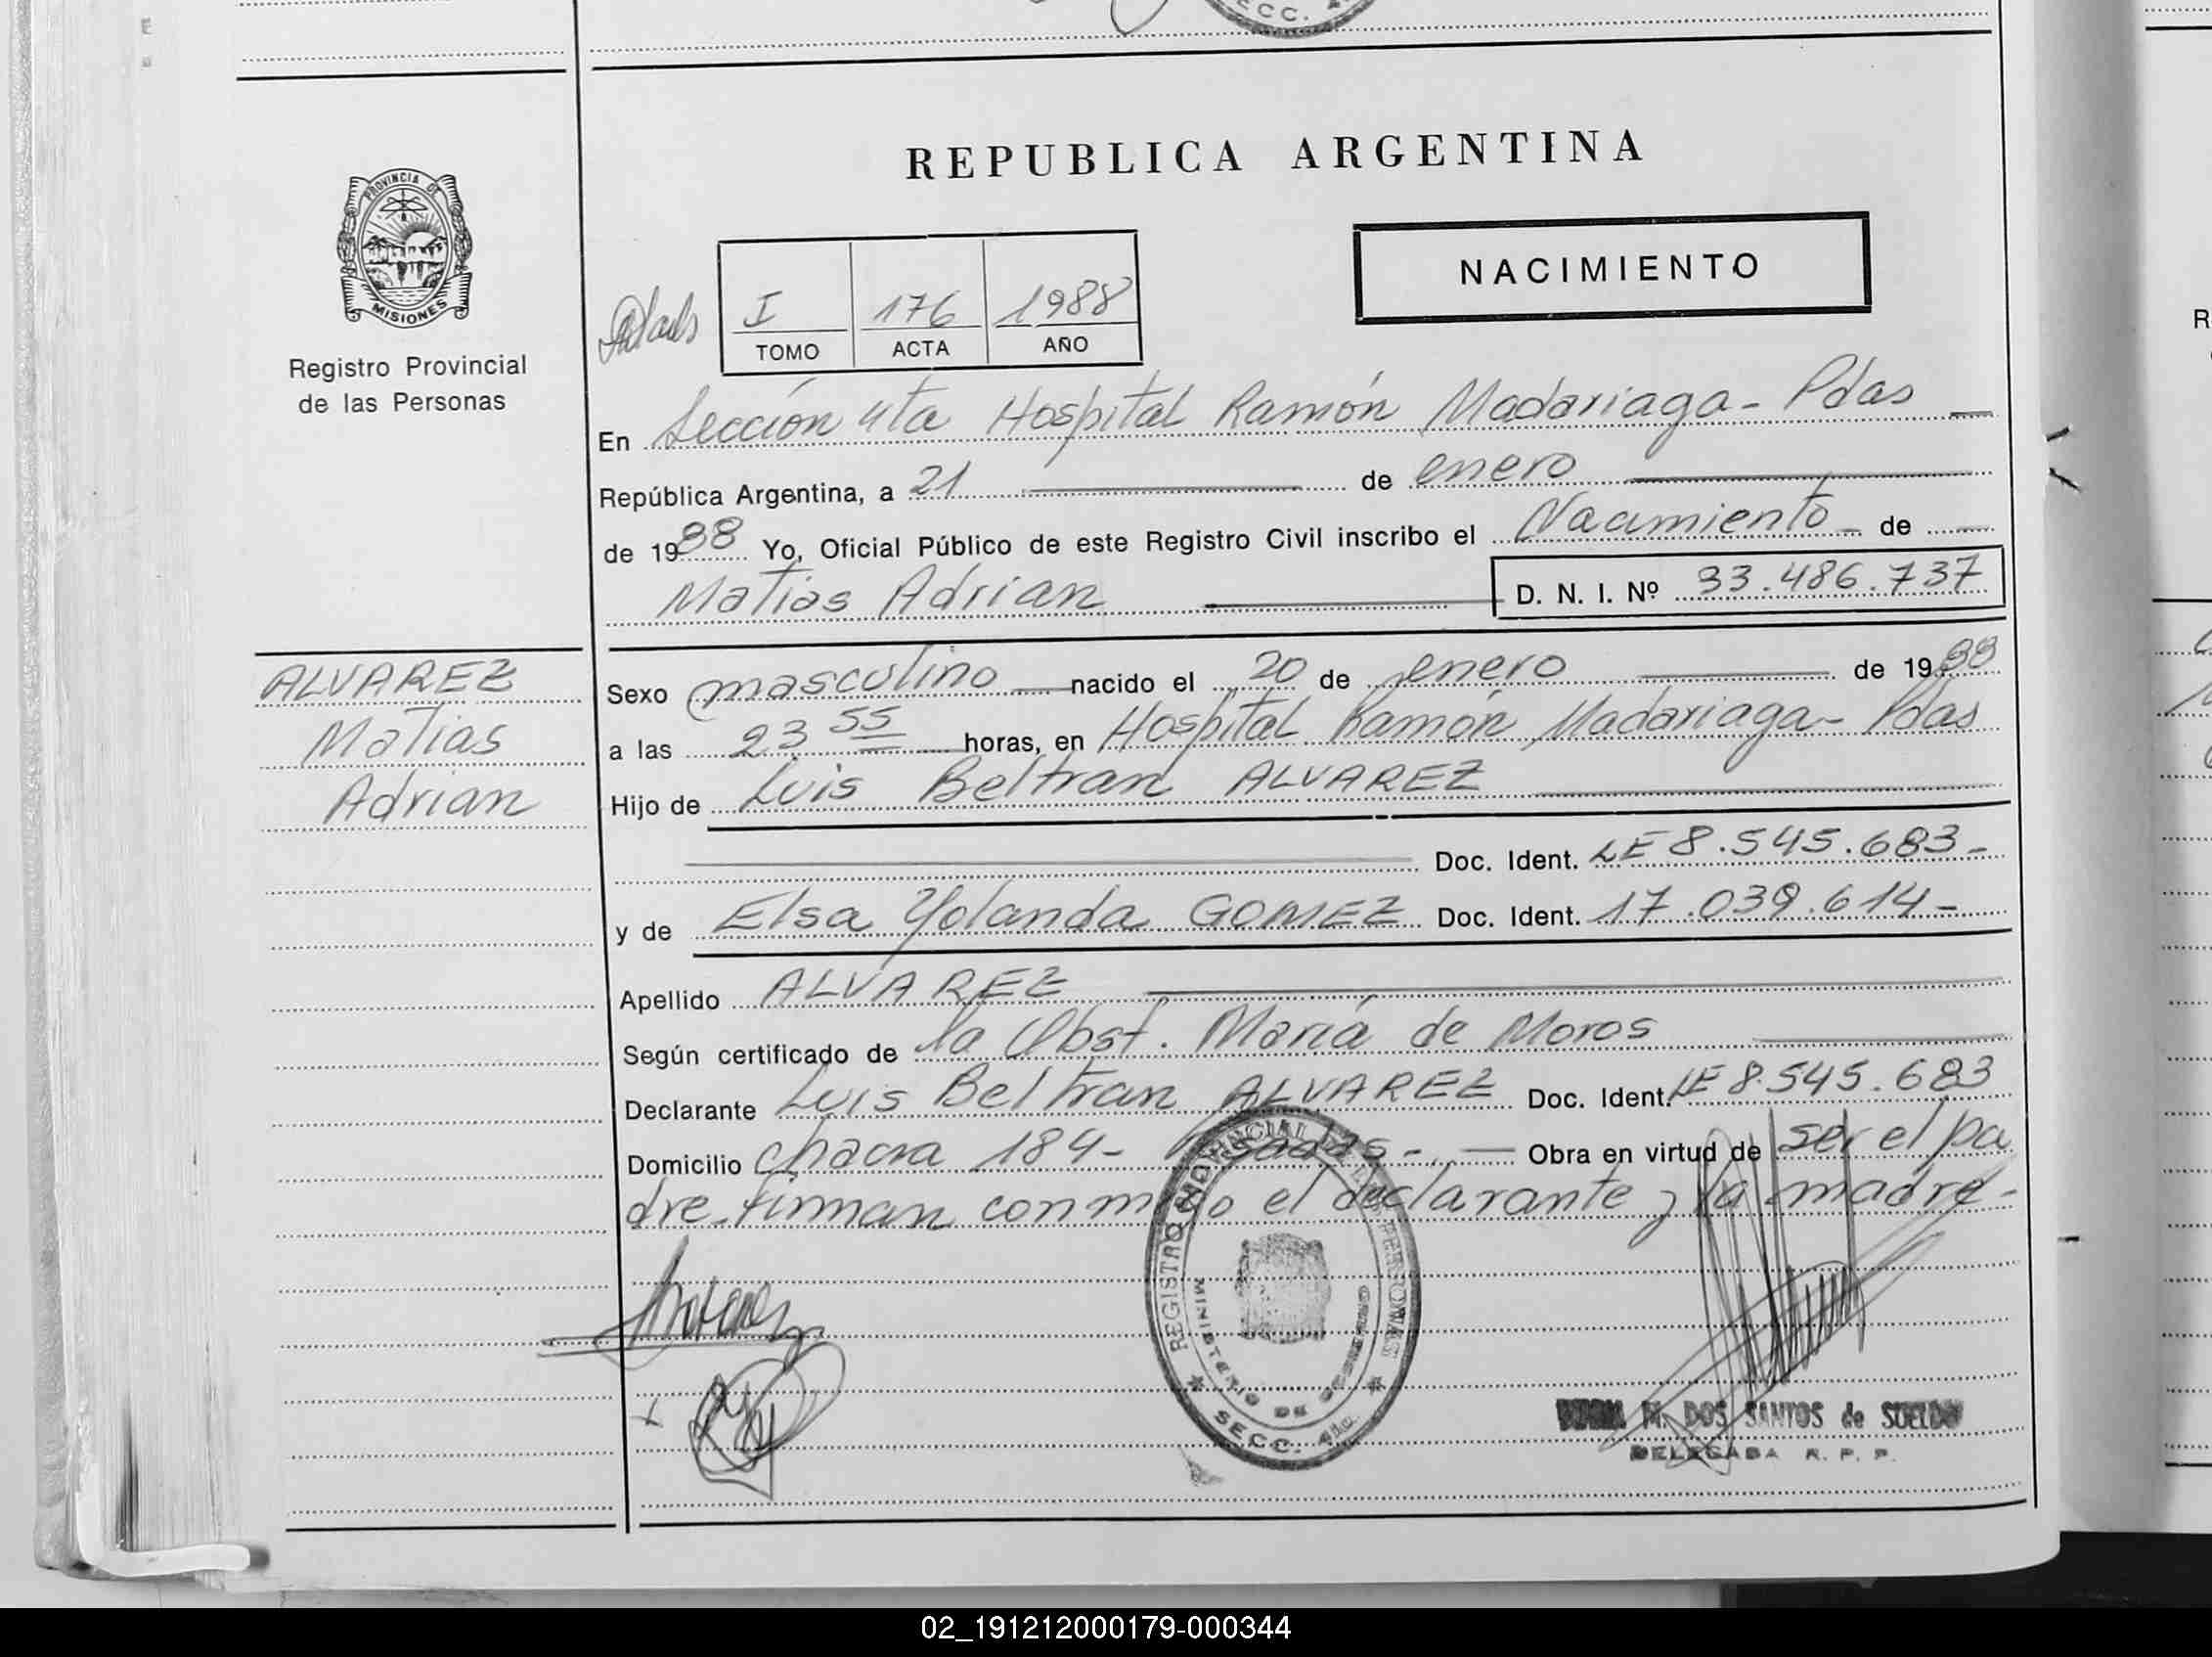 SECC. 4
REPUBLICA ARGENTINA
PROVINCIA DE
MISIONES
Registro Provincial
de las Personas
NACIMIENTO
I 176 1988
TOMO ACTA AÑO
En Sección 4ta Hospital Ramón Madariaga - Pdas
República Argentina, a 21 de enero
de 1988 Yo, Oficial Público de este Registro Civil inscribo el Nacimiento - de
Matias Adrian D. N. I. Nº 33.486.737
ALVAREZ
Matias
Adrian
Sexo masculino nacido el 20 de enero de 1988
a las 23 55 horas, en Hospital Ramón Madariaga - Pdas
Hijo de Luis Beltran ALVAREZ
Doc. Ident. LE 8.545.683-
y de Elsa Yolanda GOMEZ Doc. Ident. 17.039.614-
Apellido ALVAREZ
Según certificado de la Obst. María de Moros
Declarante Luis Beltran ALVAREZ Doc. Ident. LE 8.545.683
Domicilio chacra 184- Posadas-. Obra en virtud de ser el pa
dre-firman conmigo el declarante y la madre-
REGISTRO PROVINCIAL DE LAS PERSONAS
MINISTERIO DE GOBIERNO
SECC. 4ta.
M. DOS SANTOS de SUELDO
DELEGADA R. P. P.
02_191212000179-000344